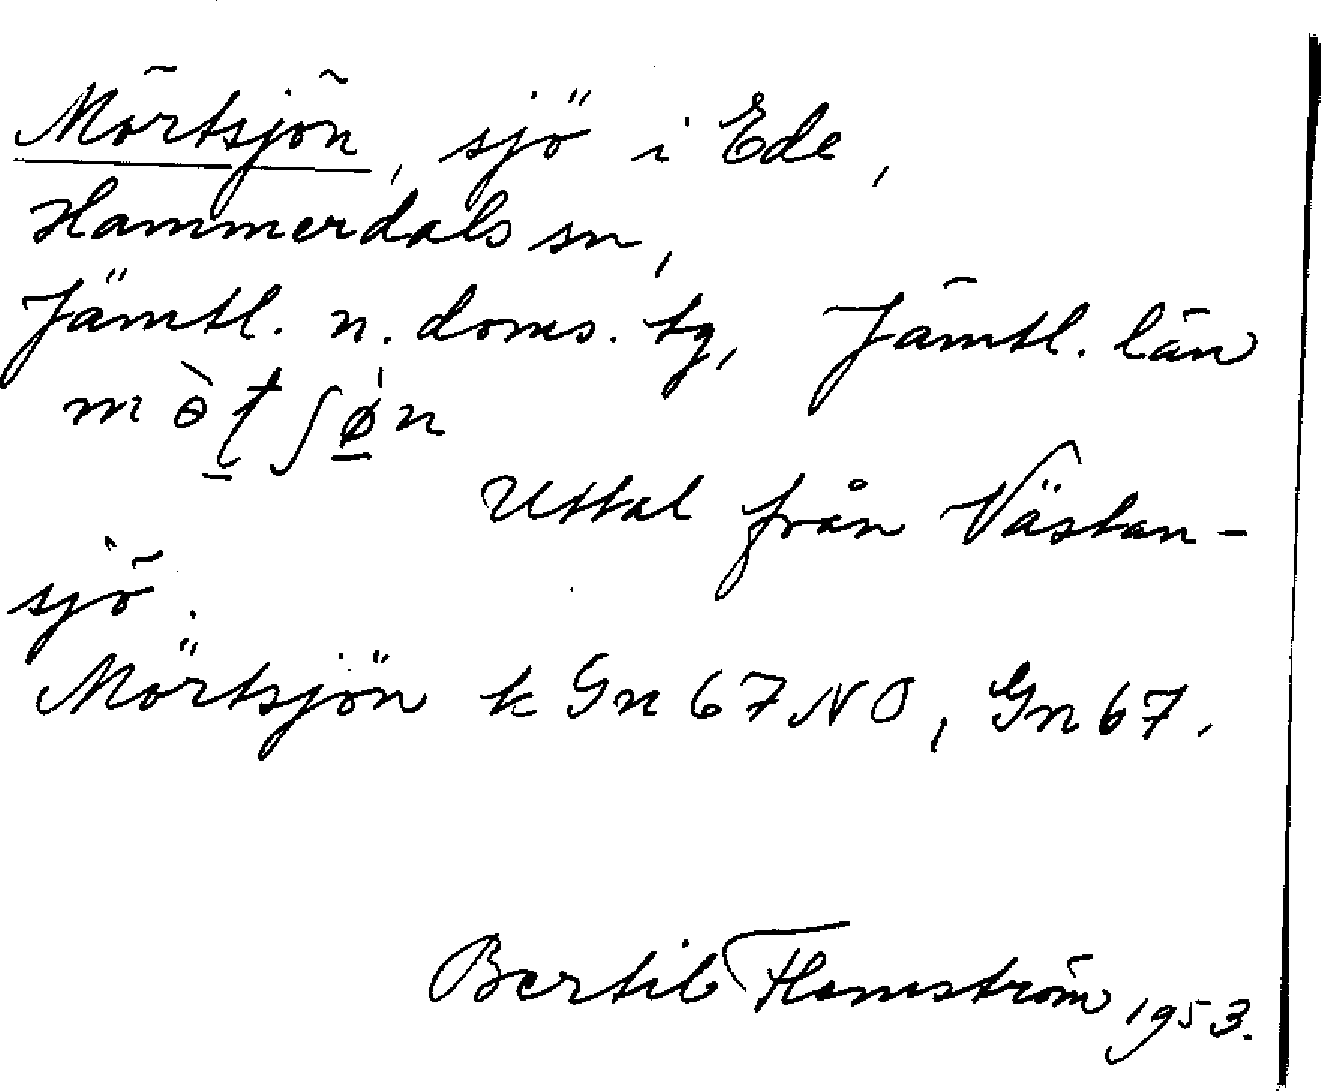 Mörtsjön, sjö i Ede,
Hammerdals sn,
Jämtl. n. doms. tg, Jämtl. län
mɵ̀ʈʃø̀n
Uttal från Västan-
sjö.
Mörtsjön k Gn 67 NO, Gn 67.
Bertil Flemström 1953.